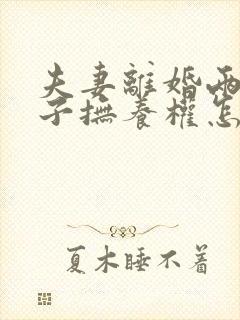 夫妻離婚兩
子撫養權怎
夏木睡不着